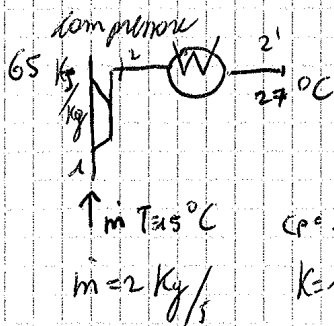 Compressore
65 KJ/kg
2
2'
27 °C
1
ṁ T=15°C
Cp=
ṁ=2 Kg/s
K=